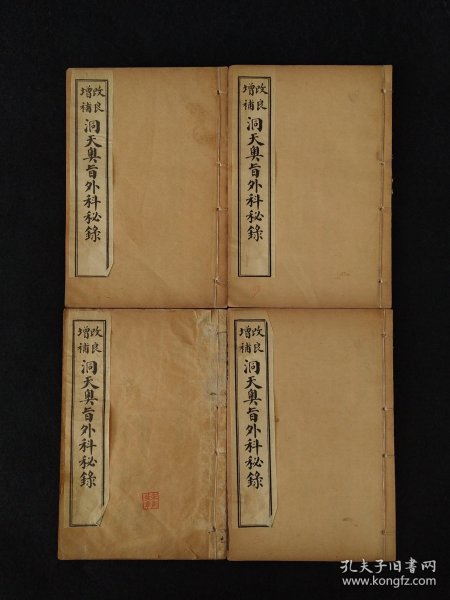 改良
增補
洞天奧旨外科秘錄
改良
增補
洞天奧旨外科秘錄
改良
增補
洞天奧旨外科秘錄
改良
增補
洞天奧旨外科秘錄
孔夫子旧书网
www.kongfz.com